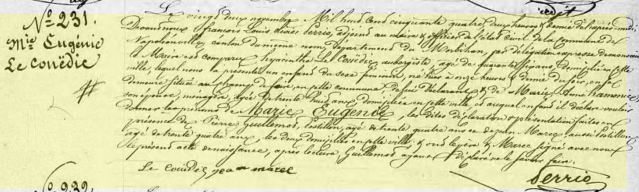 N° 231.
Mie Eugénie
Le Couëdic
Le vingt deux novembre Mil huit Cent cinquante quatre, deux heures & demie de l'après midi,
Devant nous François Louis Serrio, adjoint au maire & officier de l'état Civil de la commune de
Napoléonville, canton du même nom, département du Morbihan, par délégation expresse de monsieur
le Maire, est comparu hyacinthe Le Couëdic, aubergiste, âgé de quarante ans, domicilié en cette
ville, lequel nous a présenté un enfant du sexe féminin, né hier à onze heures & demie du soir, en sa
demeure située au champ de foire, en cette commune, de lui Déclarant & de Marie Anne
son épouse, ménagère, âgée de trente huit ans, domiciliée en cette ville, et auquel enfant il déclare vouloir
donner les prénoms de Marie Eugénie, les dites déclaration & présentation faites en
présence de Pierre Guillemot, tailleur, âgé de trente quatre ans et de Jean Marec, aussi tailleur,
âgé de trente quatre ans, les deux domiciliés en cette ville, & ont le père & Marec signé avec nous
le présent acte de naissance, après lecture, Guillemot ayant déclaré ne le savoir faire.
Le Couëdic jean marec
Serrio
N° 232.